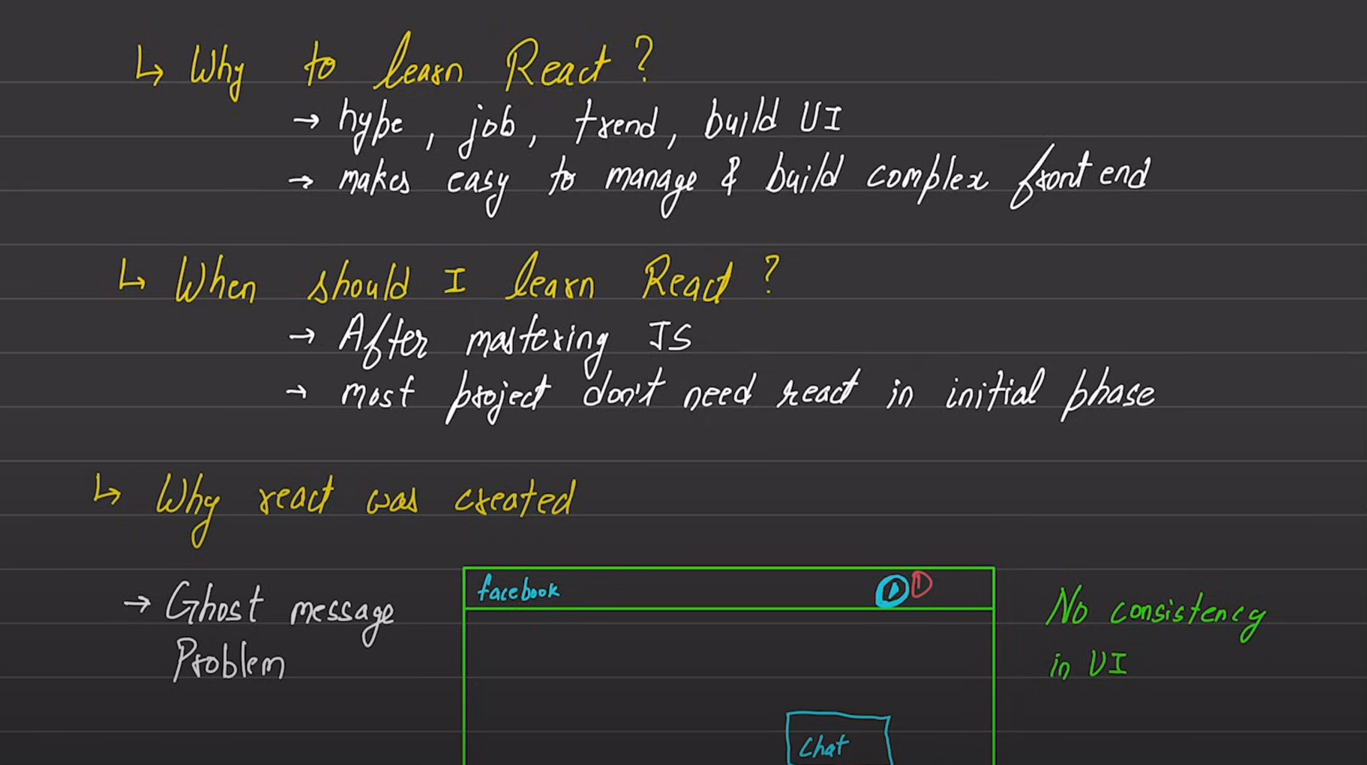 ↳ Why to learn React?
→ hype, job, trend, build UI
→ makes easy to manage & build complex front end
↳ When should I learn React?
→ After mastering JS
→ most project don't need react in initial phase
↳ Why react was created
→ Ghost message
Problem
facebook
1
No consistency
in UI
Chat